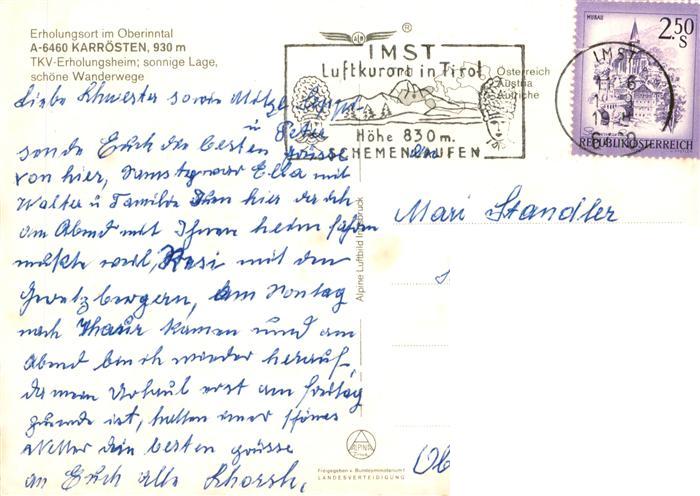 Erholungsort im Oberinntal
A-6460 KARRÖSTEN, 930 m
TKV-Erholungsheim; sonnige Lage,
schöne Wanderwege
Liebe Schwester sowie
u Peter
sende Euch die besten Grüsse
von hier, Samstag war Ella mit
Walter u Familie hier da ich
am Abend mit Ihnen heim fahren
musste weil, Resi mit den
am Sontag
nach Thaur kamen und am
Abend bin ich wieder herauf,
da mein Urlaub erst am freitag
zuende ist, hatten immer schönes
Wetter die besten grüsse
an Euch alle
IMST
Luftkurort in Tirol
Höhe 830 m.
SCHEMENLAUFEN
Österreich
Austria
Autriche
MURAU
2.50
S
REPUBLIK ÖSTERREICH
IMST
An
Mari Standler
Alpine Luftbild Innsbruck
ALPINA
Freigegeben v. Bundesministerium f.
LANDESVERTEIDIGUNG
Ob